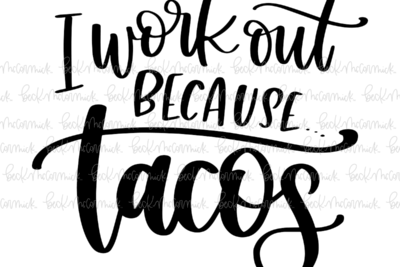 I work out
BECAUSE...
tacos